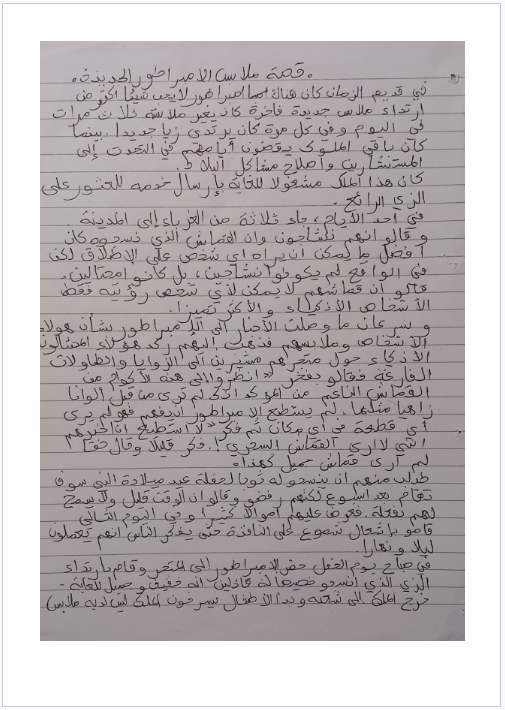 قصة ملابس الامبراطور الجديدة.
في قديم الزمان كان هناك امبراطور لا يحب شيئا اكثر من
ارتداء ملابس جديدة فاخرة كان يغير ملابسه ثلاث مرات
في اليوم وفي كل مرة كان يرتدي زيا جديدا. بينما
كان باقي الملوك يقضون أيامهم في التحدث إلى
المستشارين واصلاح مشاكل البلاد
كان هذا الملك مشغولا للغاية بإرسال خدمه للعثور على
الزي الرائع.
في أحد الأيام، جاء ثلاثة من الغرباء إلى المدينة
وقالوا انهم نساجون وان القماش الذي نسجوه كان
أفضل ما يمكن أن يراه اي شخص على الإطلاق لكن
في الواقع لم يكونوا نساجين، بل كانوا محتالين.
قالو أن قماشهم لا يمكن لأي شخص رؤيته فقط
الأشخاص الأذكياء والأكثر تميزا.
وسرعان ما وصلت الأخبار الى الإمبراطور بشأن هولاء
الأشخاص وملابسهم فذهب اليهم ركد هؤلاء المحتالون
الأذكاء حول متجرهم مشيرين الى الزوايا والطاولات
الفارغة فقالو بفخر "انظروا إلى هذه الأكوام من
القماش الناعم من المؤكد انك لم ترى من قبل ألوانا
زاهيا مثلها. لم يستطع الامبراطور أن يفهم فهو لم يرى
أي قطعة في أي مكان ثم فكر "لا أستطيع أن أخبرهم
انني لا ارى القماش السحري!. فكر قليلا وقال حقا
لم أرى قماش جميل كهذا.
طلب منهم ان ينسجو له ثوبا لحفلة عيد ميلادة التي سوف
تقام بعد اسبوع لكنهم رفضو وقالو ان الوقت قليل ولا يسمح
لهم بفعلة. فعرض عليهم أموالا كثيرا وفي اليوم التالي
قامو باشعال شموع على النافذة حتى يفكر الناس انهم يعملون
ليلا ونهارا.
في صباح يوم الحفل حضر الامبراطور الى المتجر وقام بارتداء
الزي الذي انسجو خصيصا له قائلين انه خفيف وجميل للغاية.
خرج الملك الى شعبه وبدأ الأطفال يسرخون الملك ليس لديه ملابس)